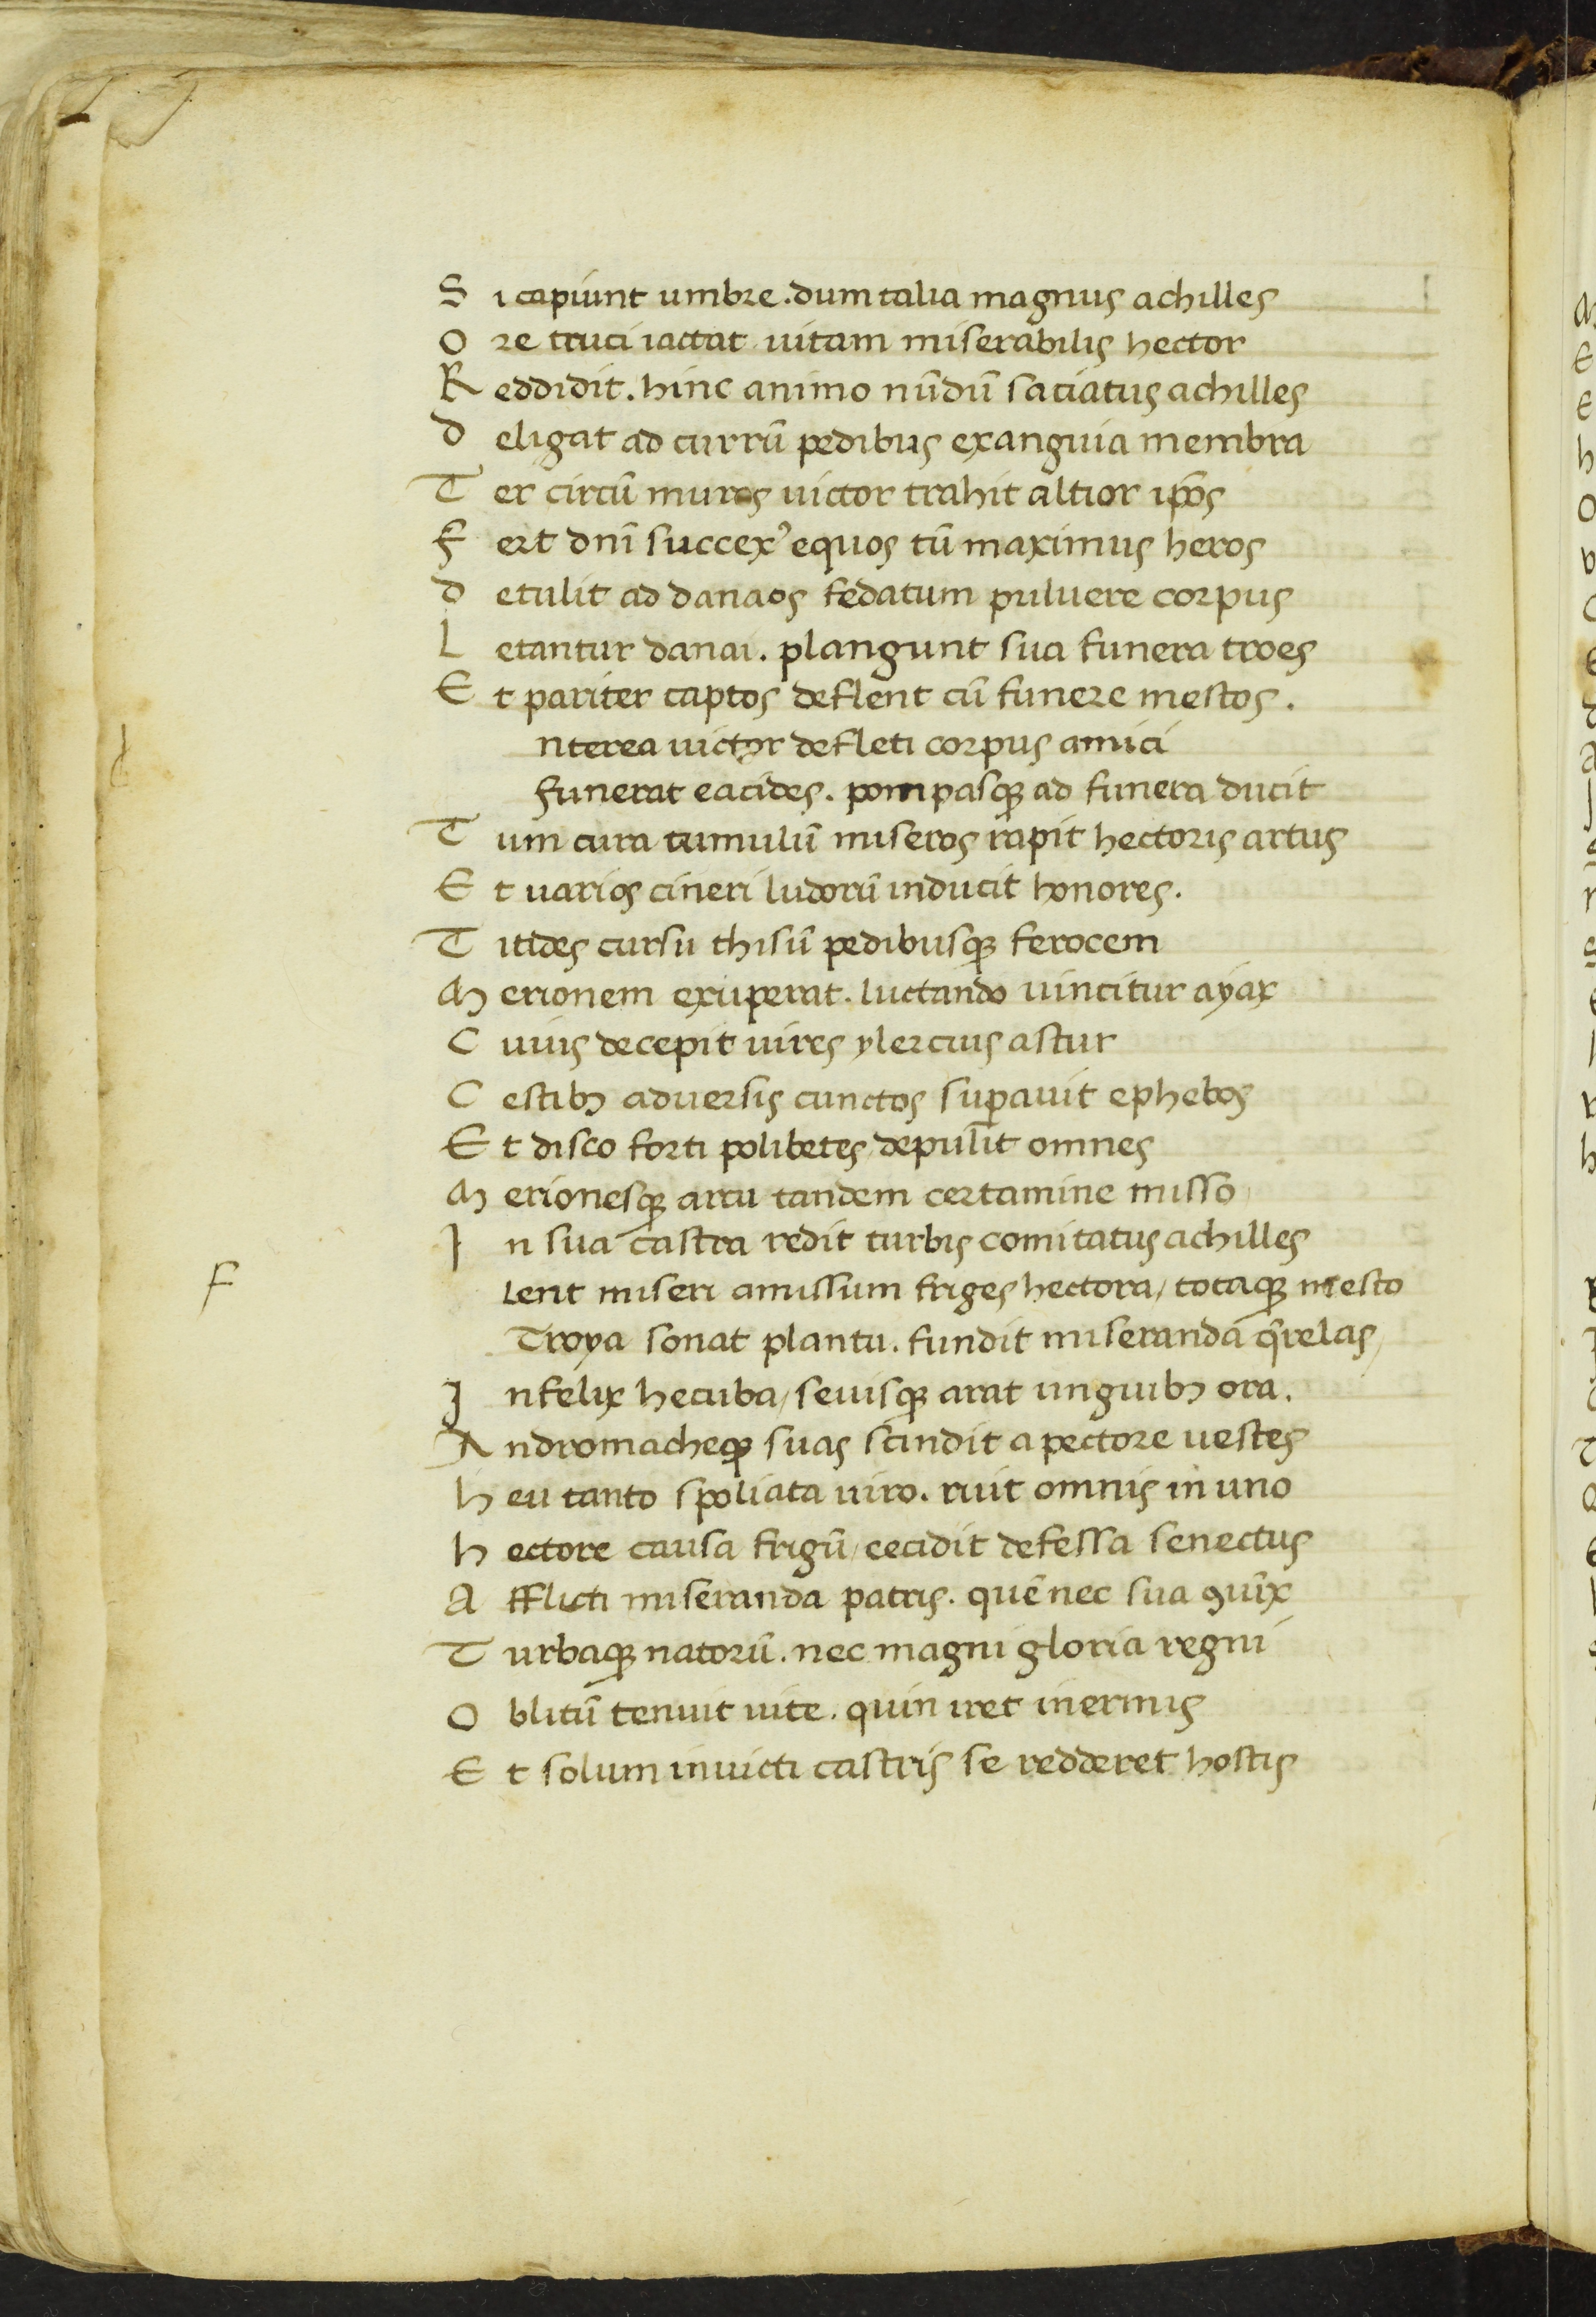 S i capiunt umbre . dum talia magnus achilles
O re truci iactat uitam miserabilis hector
R eddidit . hinc animo nūdū saciatus achilles
D eligat ad currū pedibus exanguia membra
T er circū muros uictor trahit altior ip̄os
F ert dnī succex᾿ equos tū maximus heros
D etulit ad danaos fedatum puluere corpus
L etantur danai . plangunt sua funera troes
E t pariter captos deflent cū funere mestos .
nterea uictor defleti corpus amici
Funerat eacides . pompasqꝫ ad funera ducit
T um cura tumulū miseros rapit hectoris artus
E t uarios cineri ludorū inducit honores .
T itides cursu thisū pedibusqꝫ ferocem
M erionem exuperat . luctando uincitur ayax
C uius decepit uires ylercius astur
C estibꝫ aduersis cunctos suꝑauit ephebos
E t disco forti polibetes depulit omnes
M erionesqꝫ arcu tandem certamine misso
I n sua castra redit turbis comitatus achilles
F lent miseri amissum friges hectora / totaqꝫ mesto
Troya sonat plantu . fundit miseranda q̄relas /
I nfelix hecuba / seuisqꝫ arat unguibꝫ ora .
A ndromacheqꝫ suas scindit a pectore uestes
h eu tanto spoliata uiro . ruit omnis in uno
h ectore causa frigū / cecidit defessa senectus
A fflicti miseranda patris . quē nec sua ꝯiūx
T urbaqꝫ natorū . nec magni gloria regni
O blitū tenuit uite . quin iret inermis
E t solum inuicti castris se redderet hostis